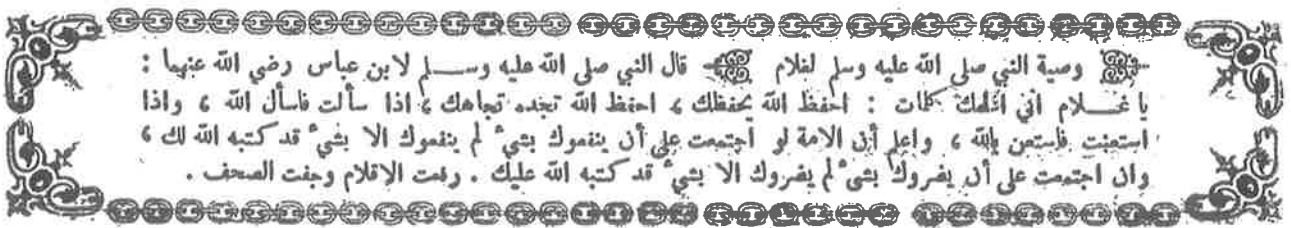 وصية النبي صلى الله عليه وسلم لغلام قال النبي صلى الله عليه وسلم لابن عباس رضي الله عنهما :
يا غلام اني اعلمك كلمات : احفظ الله يحفظك ، احفظ الله تجده تجاهك ، اذا سألت فاسأل الله ، واذا
استعنت فاستعن بالله ، واعلم أن الامة لو اجتمعت على أن ينفعوك بشيء لم ينفعوك الا بشيء قد كتبه الله لك ،
وان اجتمعت على أن يضروك بشيء لم يضروك الا بشيء قد كتبه الله عليك . رفعت الاقلام وجفت الصحف .